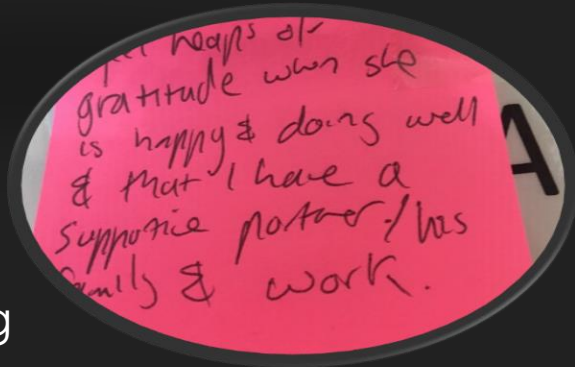 heaps of
gratitude when she
is happy & doing well
& that I have a
supportive partner / his
family & work.
A
g